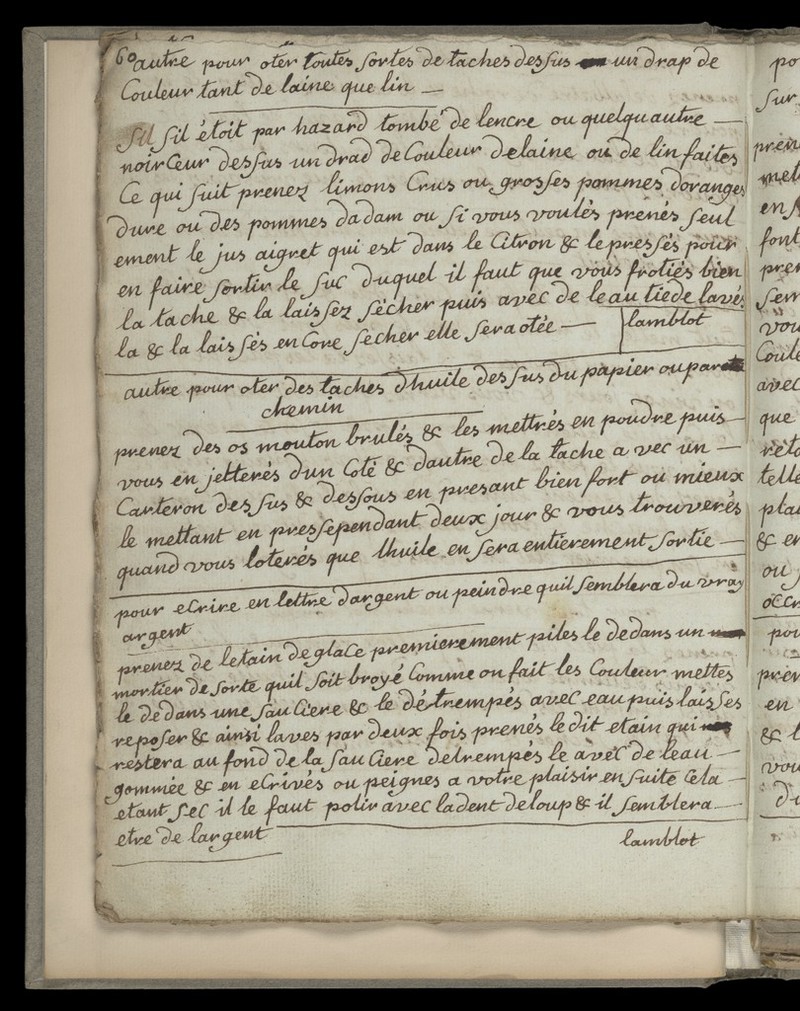 60 autre pour oter toutes sortes de taches dessus un drap de
Couleur tant de laine que lin
Sil sil étoit par hazard tombé de lencre ou quelquautre
noirCeur dessus un drad de Couleur de laine ou de lin faites
Ce qui suit prenez limons Crus ou grosses pommes doranges
Dure ou des pommes dadam ou si vous voulés prenés seul
ement le jus aigret qui est dans le Citron & le pressés pour
en faire sortir le suc duquel il faut que vous frotiés bien
la tache & la laissez sécher puis avec de leau tiede lavés
la & la laissés enCore secher elle sera otée
lamblot
autre pour oter des taches dhuile dessus du papier ou par
chemin
prenez des os mouton brulés & les mettrés en poudre puis
vous en jetterés dun Coté & dautre de la tache avec un
Carteron dessus & dessous en presant bien fort ou mieux
le mettant en pressependant deux jour & vous trouverés
quand vous loterés que lhuile en sera entierement sortie
pour eCrire en lettre dargent ou peindre quil semblera du vray
argent
prenez de letain de glaCe premierement piles le dedans un
mortier de sorte quil soit broyé Comme on fait les Couleur mettes
le dedans une sauCiere & le détrempés avec eau puis laisses
reposer & ainsi laves par deux fois prenés le dit etain qui
restera au fond de la sauCiere detrempés le avec de leau
gommée & en eCrivés ou peignes a votre plaisir ensuite Cela
etant sec il le faut polir avec la dent de loup & il semblera
etre de largent
lamblot
po
sur
met
en
font
prer
vou
Coule
avec
que
telle
plai
& en
ou
pou
pren
en
& l
vou
du